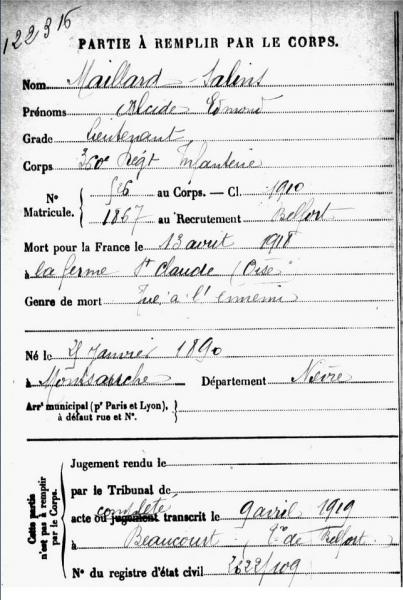 122316
PARTIE À REMPLIR PAR LE CORPS.
Nom Maillard - Salins
Prénoms Alcide Edmond
Grade lieutenant
Corps 360e Régt Infanterie
N° Matricule. { 526 au Corps. — Cl. 1910
1867 au Recrutement Belfort
Mort pour la France le 13 avril 1918
à la ferme St Claude (Oise)
Genre de mort Tué à l'ennemi
Né le 25 Janvier 1890
à Montsauche Département Nièvre
Arrt municipal (pr Paris et Lyon), à défaut rue et N°. }
Cette partie n'est pas à remplir par le Corps.
Jugement rendu le
par le Tribunal de
complété
acte ou jugement transcrit le 9 avril 1919
à Beaucourt Tre de Belfort
N° du registre d'état civil 2622/109